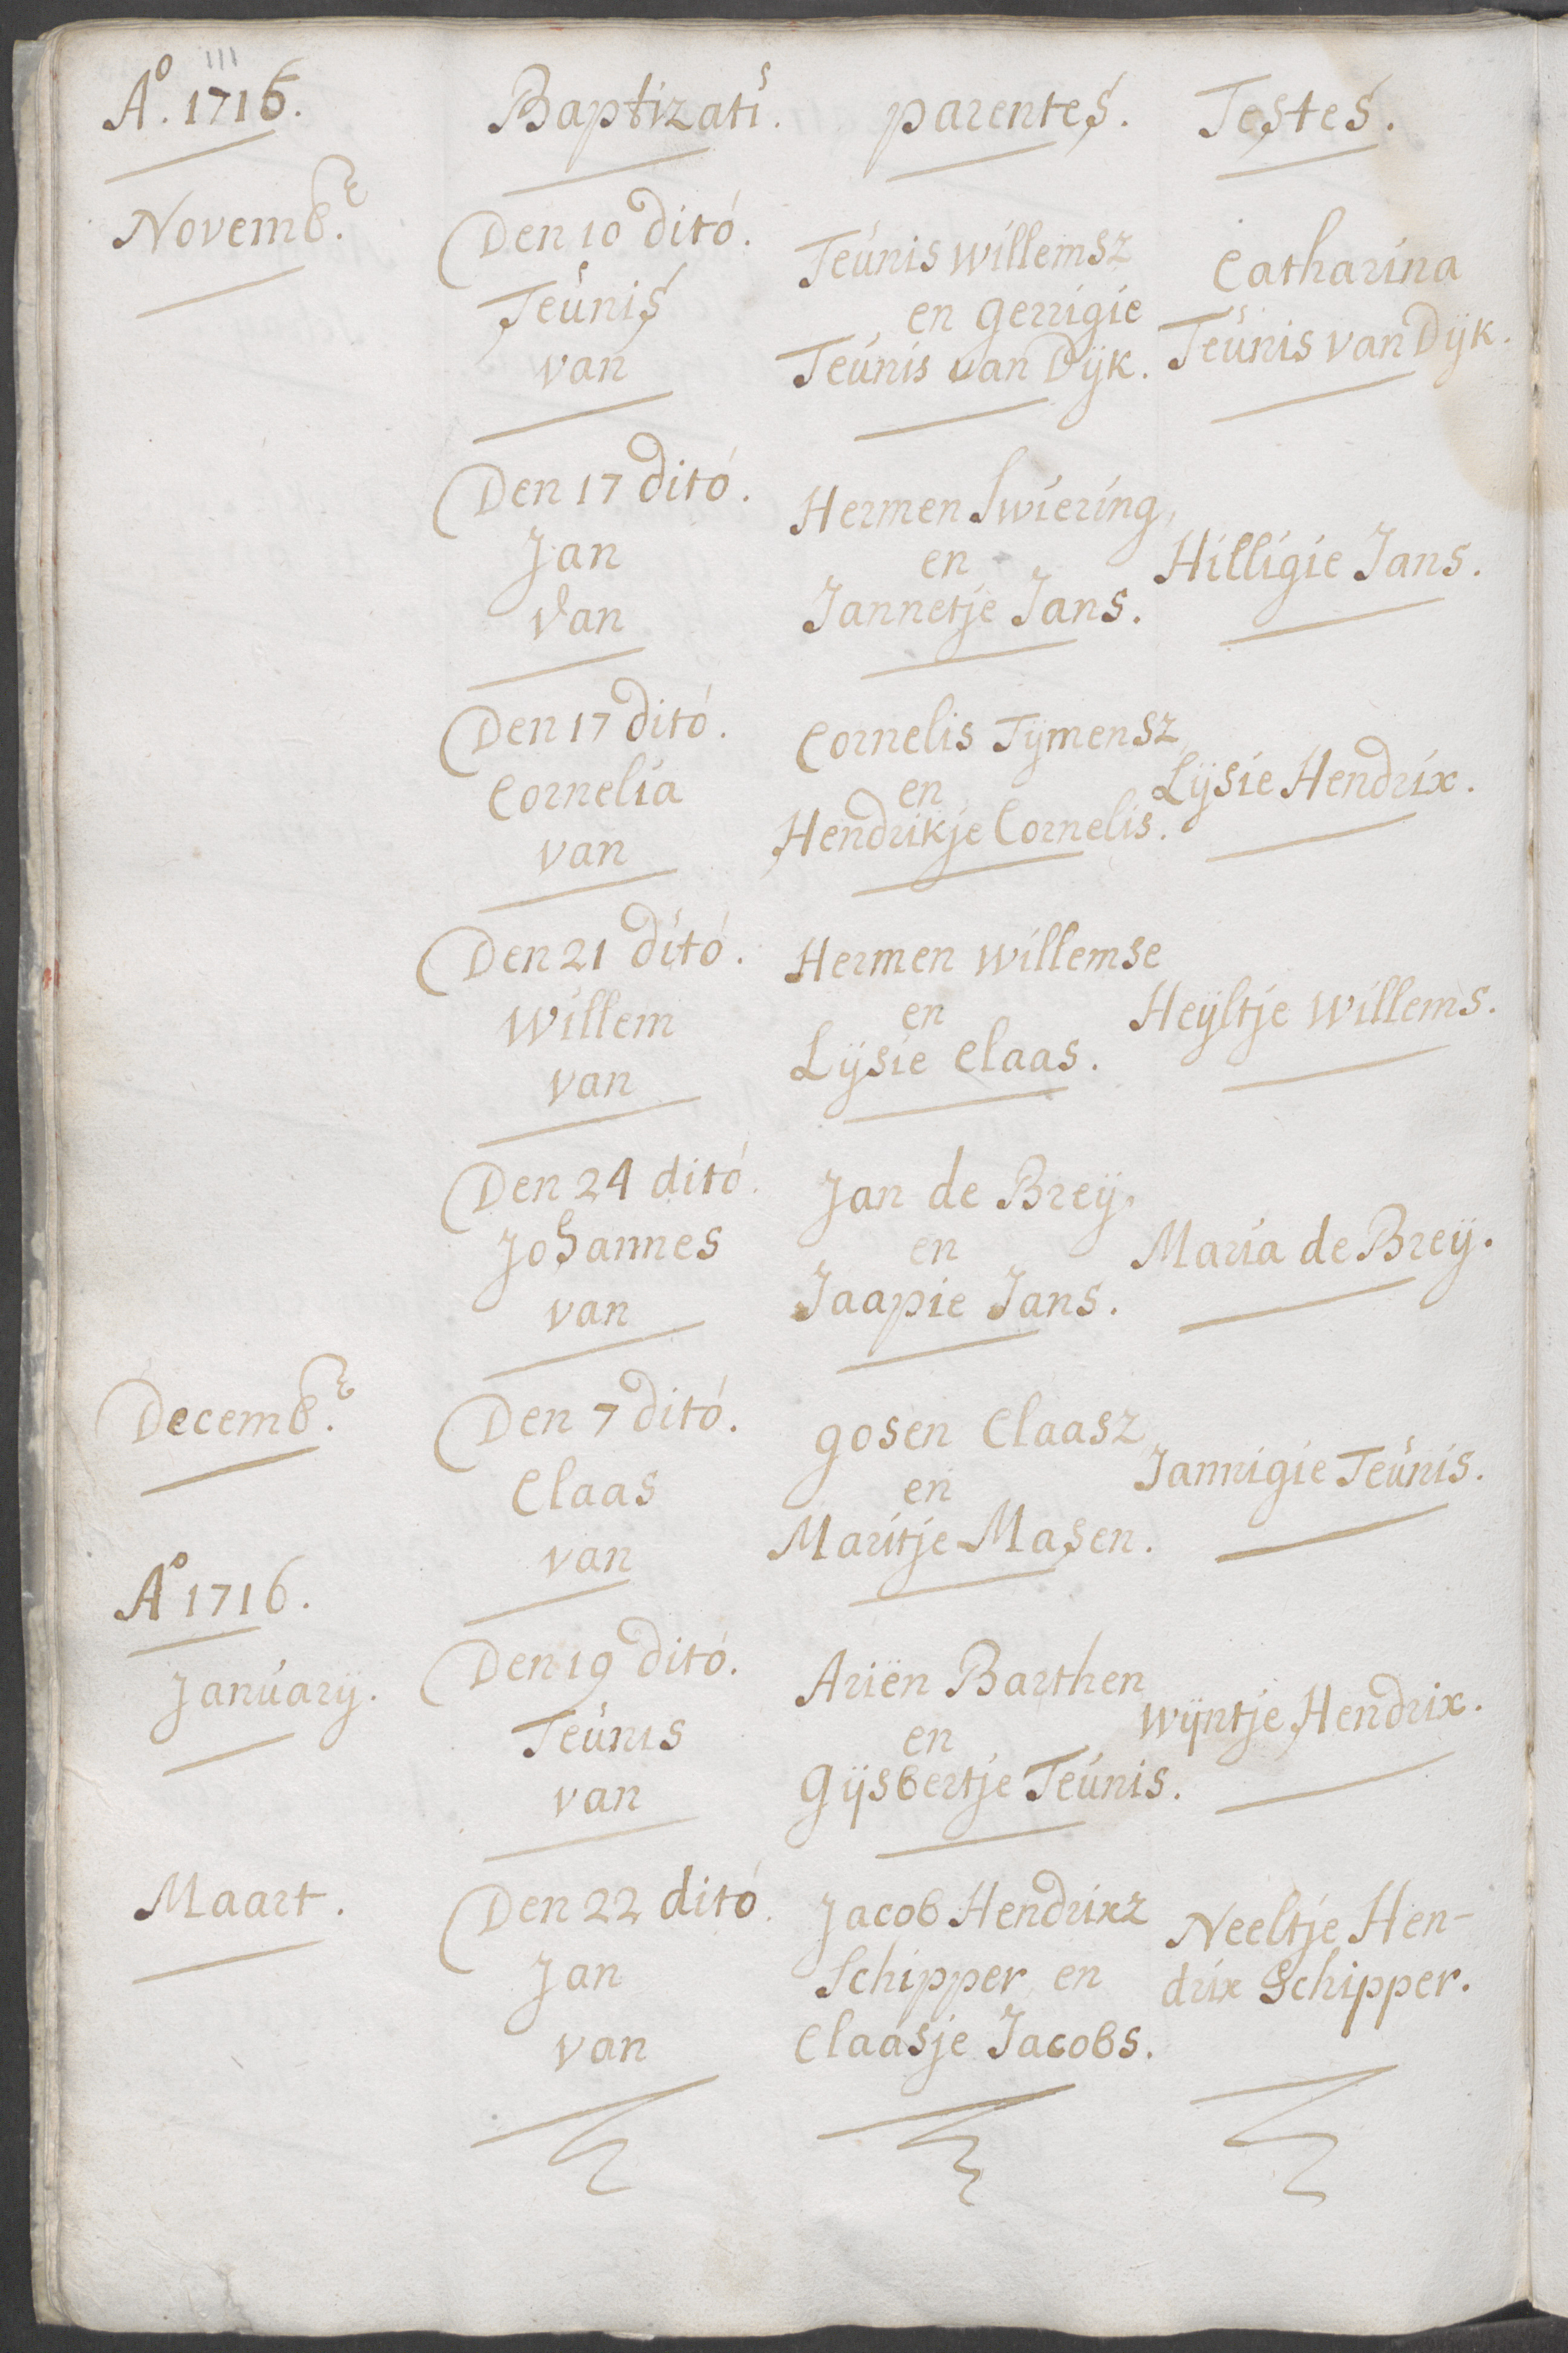 111
A° 1715. Baptizati. parentes. Testes.
Novemb.r
Den 10 dito. Teunis willemsz
Teunis en gerrigie Catharina
van Teunis van Dijk. Teunis van Dijk.
Den 17 dito. Hermen Swiering,
Jan en Hilligie Jans.
van Jannetje Jans.
Den 17 dito. Cornelis Tijmensz
Cornelia en Lijsie Hendrix.
van Hendrikje Cornelis.
Den 21 dito. Hermen willemse
willem en Heijltje willems.
van Lijsie Claas.
Den 24 dito. Jan de Breij,
Johannes en Maria de Breij.
van Jaapie Jans.
Decemb.r
Den 7 dito. gosen Claasz
Claas en Jannigie Teunis.
van Maritje Masen.
A° 1716.
Januarij.
Den 19 dito. Ariën Barthen
Teunis en wijntje Hendrix.
van Gijsbertje Teunis.
Maart.
Den 22 dito. Jacob Hendrixz Neeltje Hen-
Jan Schipper en drix Schipper.
van Claasje Jacobs.